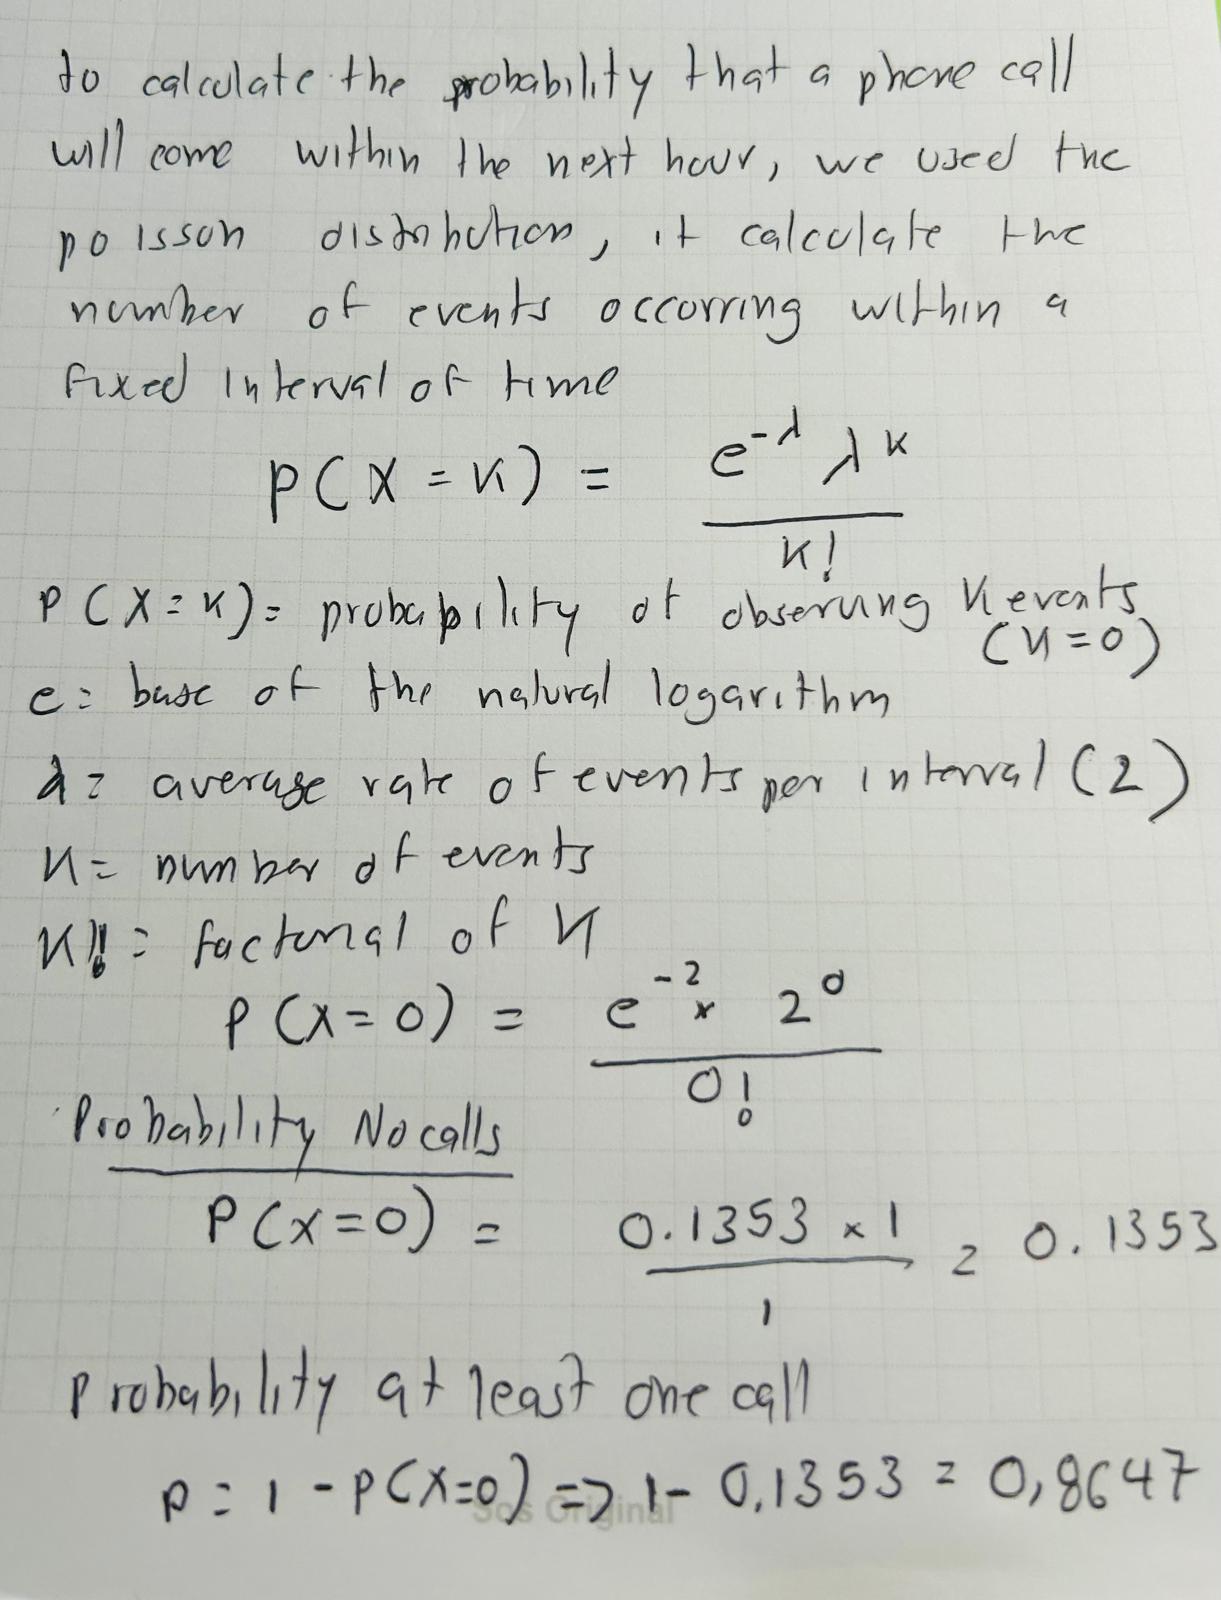 to calculate the probability that a phone call
will come within the next hour, we used the
poisson distribution, it calculate the
number of events occurring within a
fixed interval of time
P(X=K) = e^-λ λ^K / K!
P(X=K)= probability of observing K events
(K=0)
e= base of the natural logarithm
λ= average rate of events per interval (2)
K= number of events
K!= factorial of K
P(X=0) = e^-2 x 2^0 / 0!
Probability No calls
P(X=0) = 0.1353 x 1 / 1 = 0.1353
Probability at least one call
P=1-P(X=0) => 1-0.1353 = 0,8647
Sos Original